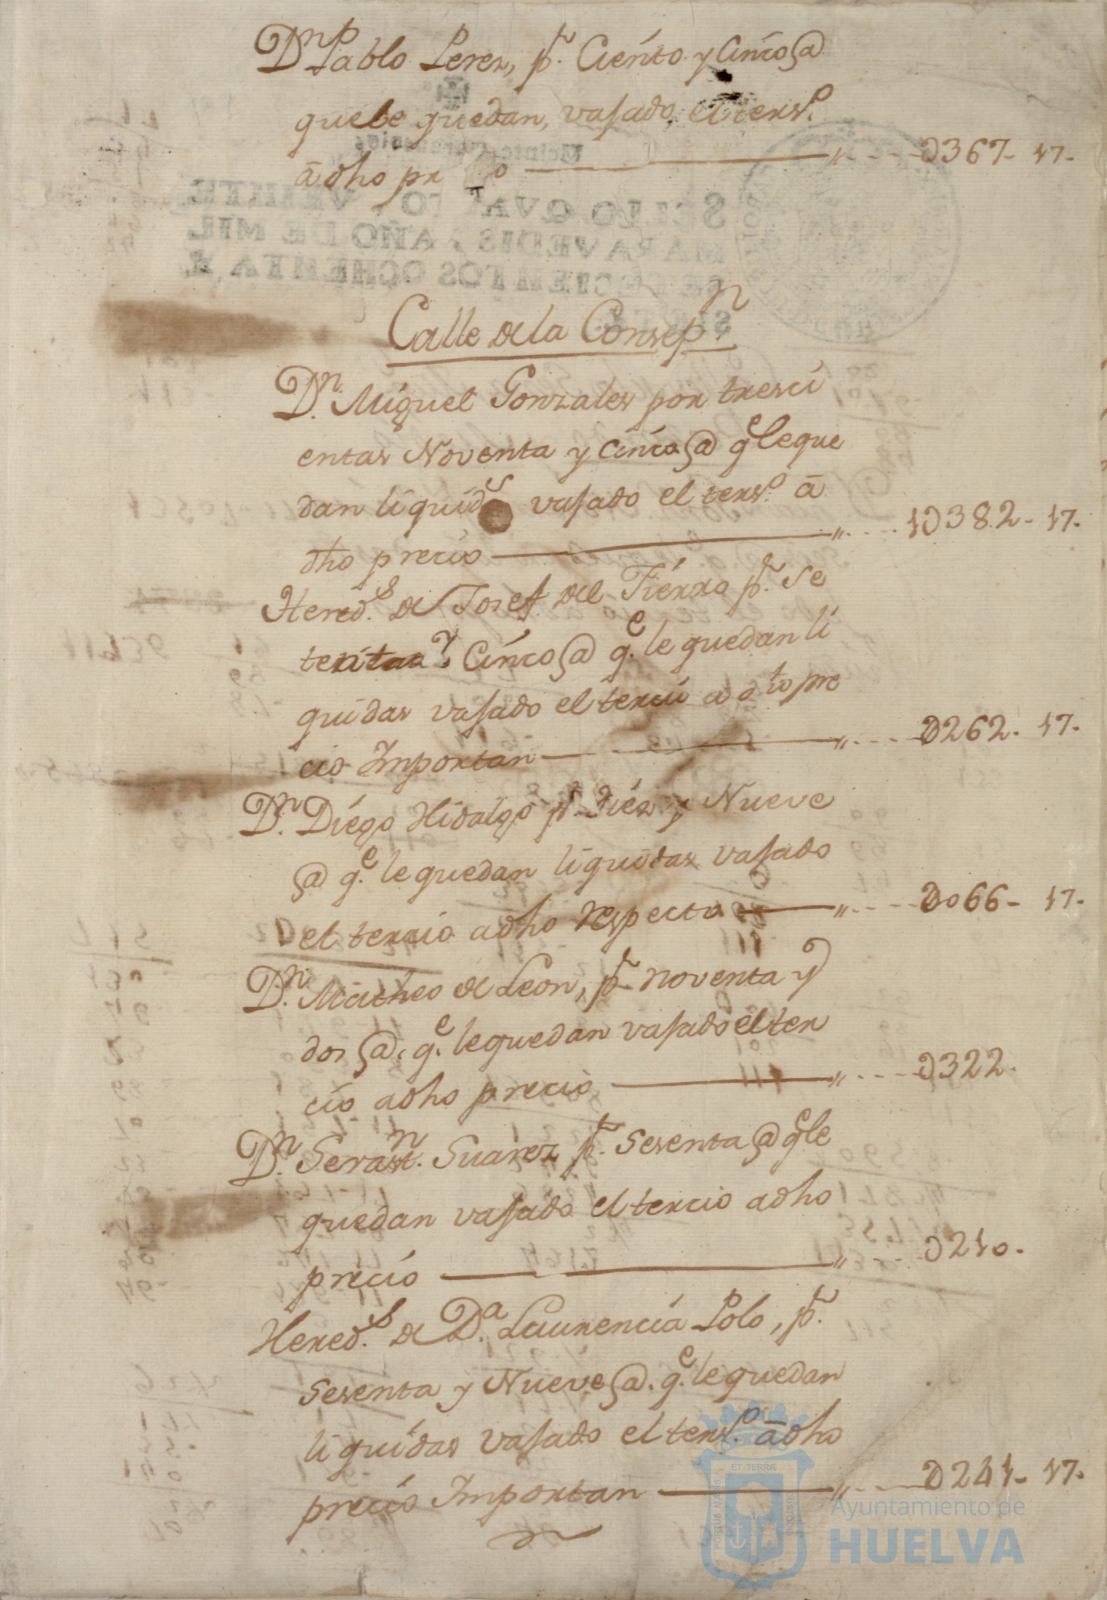 Dn Pablo Perez, pr. Ciento y Cinco @
quele quedan, vasado el terso.
â dho pr o — 367 - 17.
SELLO QVARTO, VEINTE
MARAVEDIS, AÑO DE MIL
SETECIENTOS OCHENTA Y
Calle de la Consepn.
Dn. Miguel Gonzales por tresci
entas Noventa y cinco @ qe le que
dan liquids vasado el terso. â
dho precio — 1382 - 17.
Hereds. de Josef del Fierro pr. Se
tentaa y Cinco @ qe. le quedan li
quidas vasado el tercio a dho pre
cio Importan — 262 - 17.
Dn. Diego Hidalgo pr. Diez y Nueve
@ qe. le quedan liquidas vasado
el tercio adho respecto — 066 - 17.
Dn. Matheo de Leon, pr. noventa y
dos @. qe. le quedan vasado el ter
cio adho precio — 322.
Dn. Sevastn. Suarez pr. Sesenta @ qe le
quedan vasado el tercio adho
precio — 210.
Hereds. de Da. Laurencia Polo, pr.
Sesenta y Nueve @. qe. le quedan
liquidas vasado el terso. â dho
precio Importan — 241 - 17.
Ayuntamiento de
HUELVA